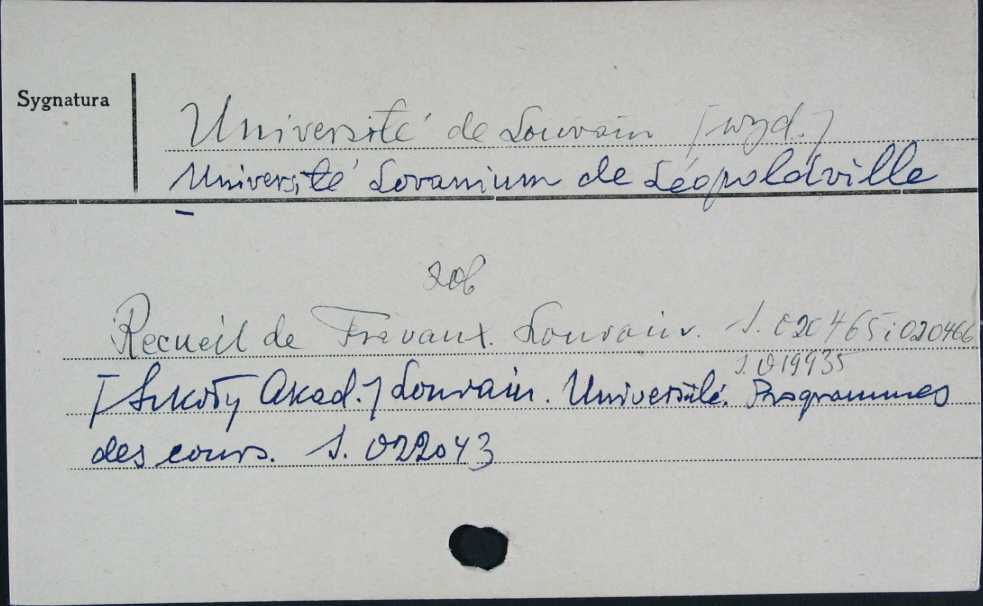 Sygnatura
Université de Louvain [wyd.]
Université Lovanium de Léopoldville
zob
Recueil de Travaux. Louvain. S. 020465 i 020466
S. 019935
[Szkoły Akad.] Louvain. Université. Programmes
des cours. S. 022043